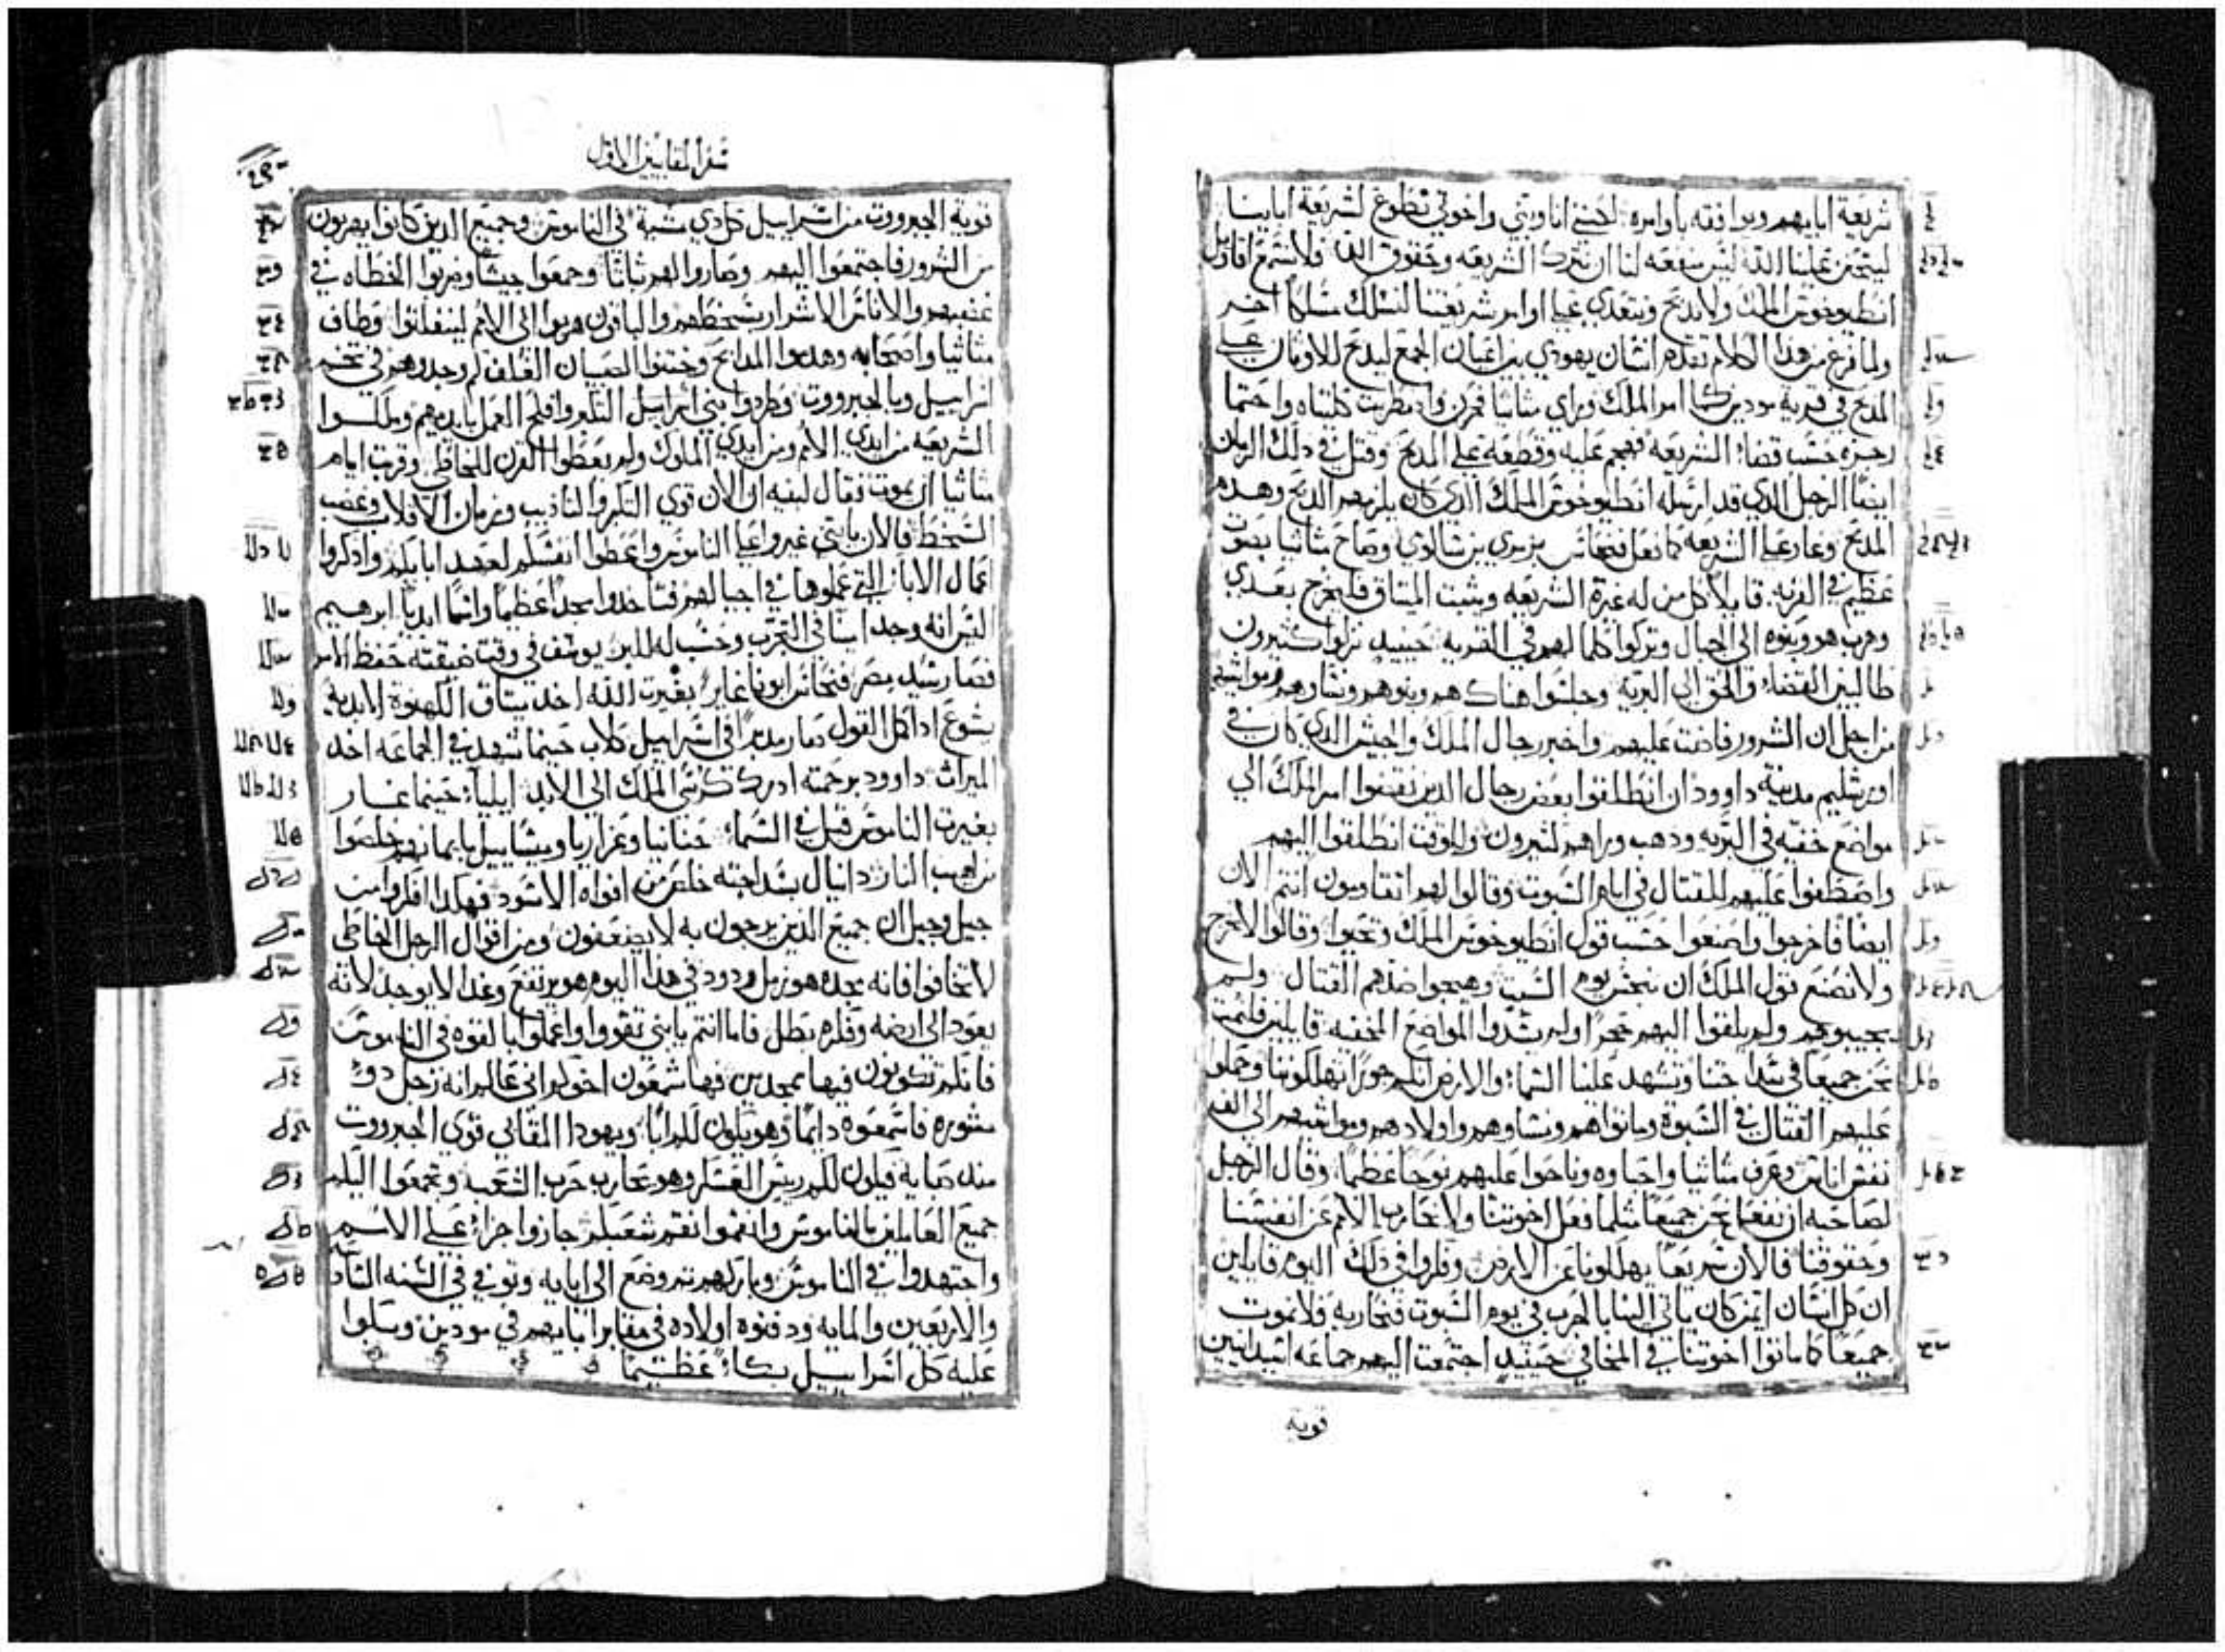 شريعة ابايهم ويوافقه باوامره لكنني انا وبني واخوتي نطوع لشريعة اباينا
ليتحنن علينا الله ليس منفعه لنا ان نترك الشريعه وحقوق الله فلا نسمع اقاويل
انطيوخوس الملك ولا ندبح ونتعدي علي اوامر شريعتنا لنسلك مسلكا اخر
ولما فرغ من هذا الكلام تقدم انسان يهودي بين اعيان الجمع ليدبح للاوثان علي
المدبح في قرية مودين كما امر الملك وراي متاثيا فحزن واضطربت كليتاه واحتما
رجزه حسب قضاء الشريعه فهجم عليه وقطعه علي المدبح وقتل في دلك الزمان
ايضا الرجل الدي قد ارسله انطيوخوس الملك الدي كان يلزمهم الدبح وهدم
المدبح وغار علي الشريعه كما فعل فنحاس بزمري بن شالوي وصاح متاثيا بصوت
عظيم في القريه قايلا كل من له غيرة الشريعه ويثبت الميتاق فليخرج بعدي
وهرب هو وبنوه الي الجبال وتركوا كلما لهم في القريه حينيد نزلوا كثيرون
طالبين القضاء والحق الي البريه وجلسوا هناك هم وبنوهم ونساوهم ومواشيهم
من اجل ان الشرور فاضت عليهم واخبر رجال الملك والجيش الدي كان في
اورشليم مدينة داوود ان انطلقوا بعض رجال الدين نقضوا امر الملك الي
مواضع خفيه في البريه ودهب وراهم كثيرون وللوقت انطلقوا اليهم
واصطفوا عليهم للقتال في ايام السبوت وقالوا لهم اتقاومون انتم الان
ايضا فاخرجوا واصنعوا حسب قول انطيوخوس الملك وتحيوا وقالوا لا نخرج
ولا نصنع قول الملك ان ننجس يوم السبت وهيجوا ضدهم القتال ولم
يجيبوهم ولم يلقوا اليهم حجرا ولم يسدوا المواضع المخفيه قايلين فلنمت
نحن جميعا في سداجتنا وتشهد علينا السماء والارض انكم جورا تهلكوننا وحملوا
عليهم القتال في السبوة وماتوا هم ونساوهم واولادهم ومواشيهم الي الف
نفس اناس وعرف متاثيا واحباوه وناحوا عليهم نوحا عظيما وقال الرجل
لصاحبه ان نفعل نحن جميعا مثلما فعل اخوتنا ولا نحارب الامم عن انفسنا
وحقوقنا فالان سريعا يهلكوننا عن الارض وفكروا في دلك اليوم قايلين
ان كل انسان ايمن كان ياتي الينا بالحرب في يوم السبوت فنحاربه فلا نموت
جميعا كما ماتوا اخوتنا في المخافي حينيد اجتمعت اليهم جماعه اسيدانيين
قوية
سفر المقابيين الاول
قوية الجبرووت من اسراييل كل دي مشية في الناموس وجميع الدين كانوا يهربون
من الشرور فاجتمعوا اليهم وصاروا لهم ثباتا وجمعوا جيشا وضربوا الخطاه في
غضبهم والاناس الاشرار بسخطهم والباقون هربوا الي الامم لينفلتوا وطاف
متاثيا واصحابه وهدموا المدابح وختنوا الصبيان الغلف كم وجدوهم في تخم
اسراييل وبالجبرووت وطردوا بني اسراييل التكبر وافلح العمل بايديهم وملكوا
الشريعه من ايدي الامم ومن ايدي الملوك ولم يعطوا القرن للخاطي وقربت ايام
متاثيا ان يموت فقال لبنيه ان الان قوي التكبر والتاديب وزمان الانقلاب وغضب
السخط فالان يا بني غيروا علي الناموس واعطوا انفسكم لعهد ابايكم وادكروا
اعمال الاباء التي عملوها في اجيالهم فتاخدوا مجدا عظيما واسما ابديا ابرهيم
اليس انه وجد امينا في التجرب وحسب له للبر يوسف في وقت ضيقته حفظ الامر
فصار رشيد مصر فنحاس ابونا غاير بغيرت الله اخد ميتاق الكهنوة الابدية
يشوع اد اكمل القول صار مدبرا في اسراييل كلاب حينما شهد في الجماعه اخد
الميراث داوود برحمته ادرك كرسي الملك الي الابد ايلياء حينما غار
بغيرت الناموس قبل في السماء حنانيا وعزاريا وميشاييل بايمانهم خلصوا
من لهيب النار دانيال بسداجته خلص من افواه الاسود فهكدا افكروا من
جيل وجيل ان جميع الدين يرجون به لا يضعفون ومن اقوال الرجل الخاطي
لا تخافوا فانه مجده هو زبل ودود في هدا اليوم هو يرتفع وغدا لا يوجد لانه
يعود الي ارضه وفكره بطل فاما انتم يا بني تقووا واعملوا بالقوه في الناموس
فانكم تكونون فيها ممجدين فها شمعون اخوكم اني عالم انه رجل دو
مشوره فاسمعوه دايما وهو يكون لكم ابا ويهودا المقابي قوي الجبرووت
مند صبايه فيكون لكم ريس العسكر وهو يحارب حرب الشعب وتجمعوا اليكم
جميع العاملين بالناموس وانقموا نقم شعبكم جازوا جزاء علي الامم
واجتهدوا في الناموس وباركهم ثم وضع الي ابايه وتوفي في السنه السادسة
والاربعين والمايه ودفنوه اولاده في مقابر ابايهم في مودين وبكوا
عليه كل اسراييل بكاء عظيما